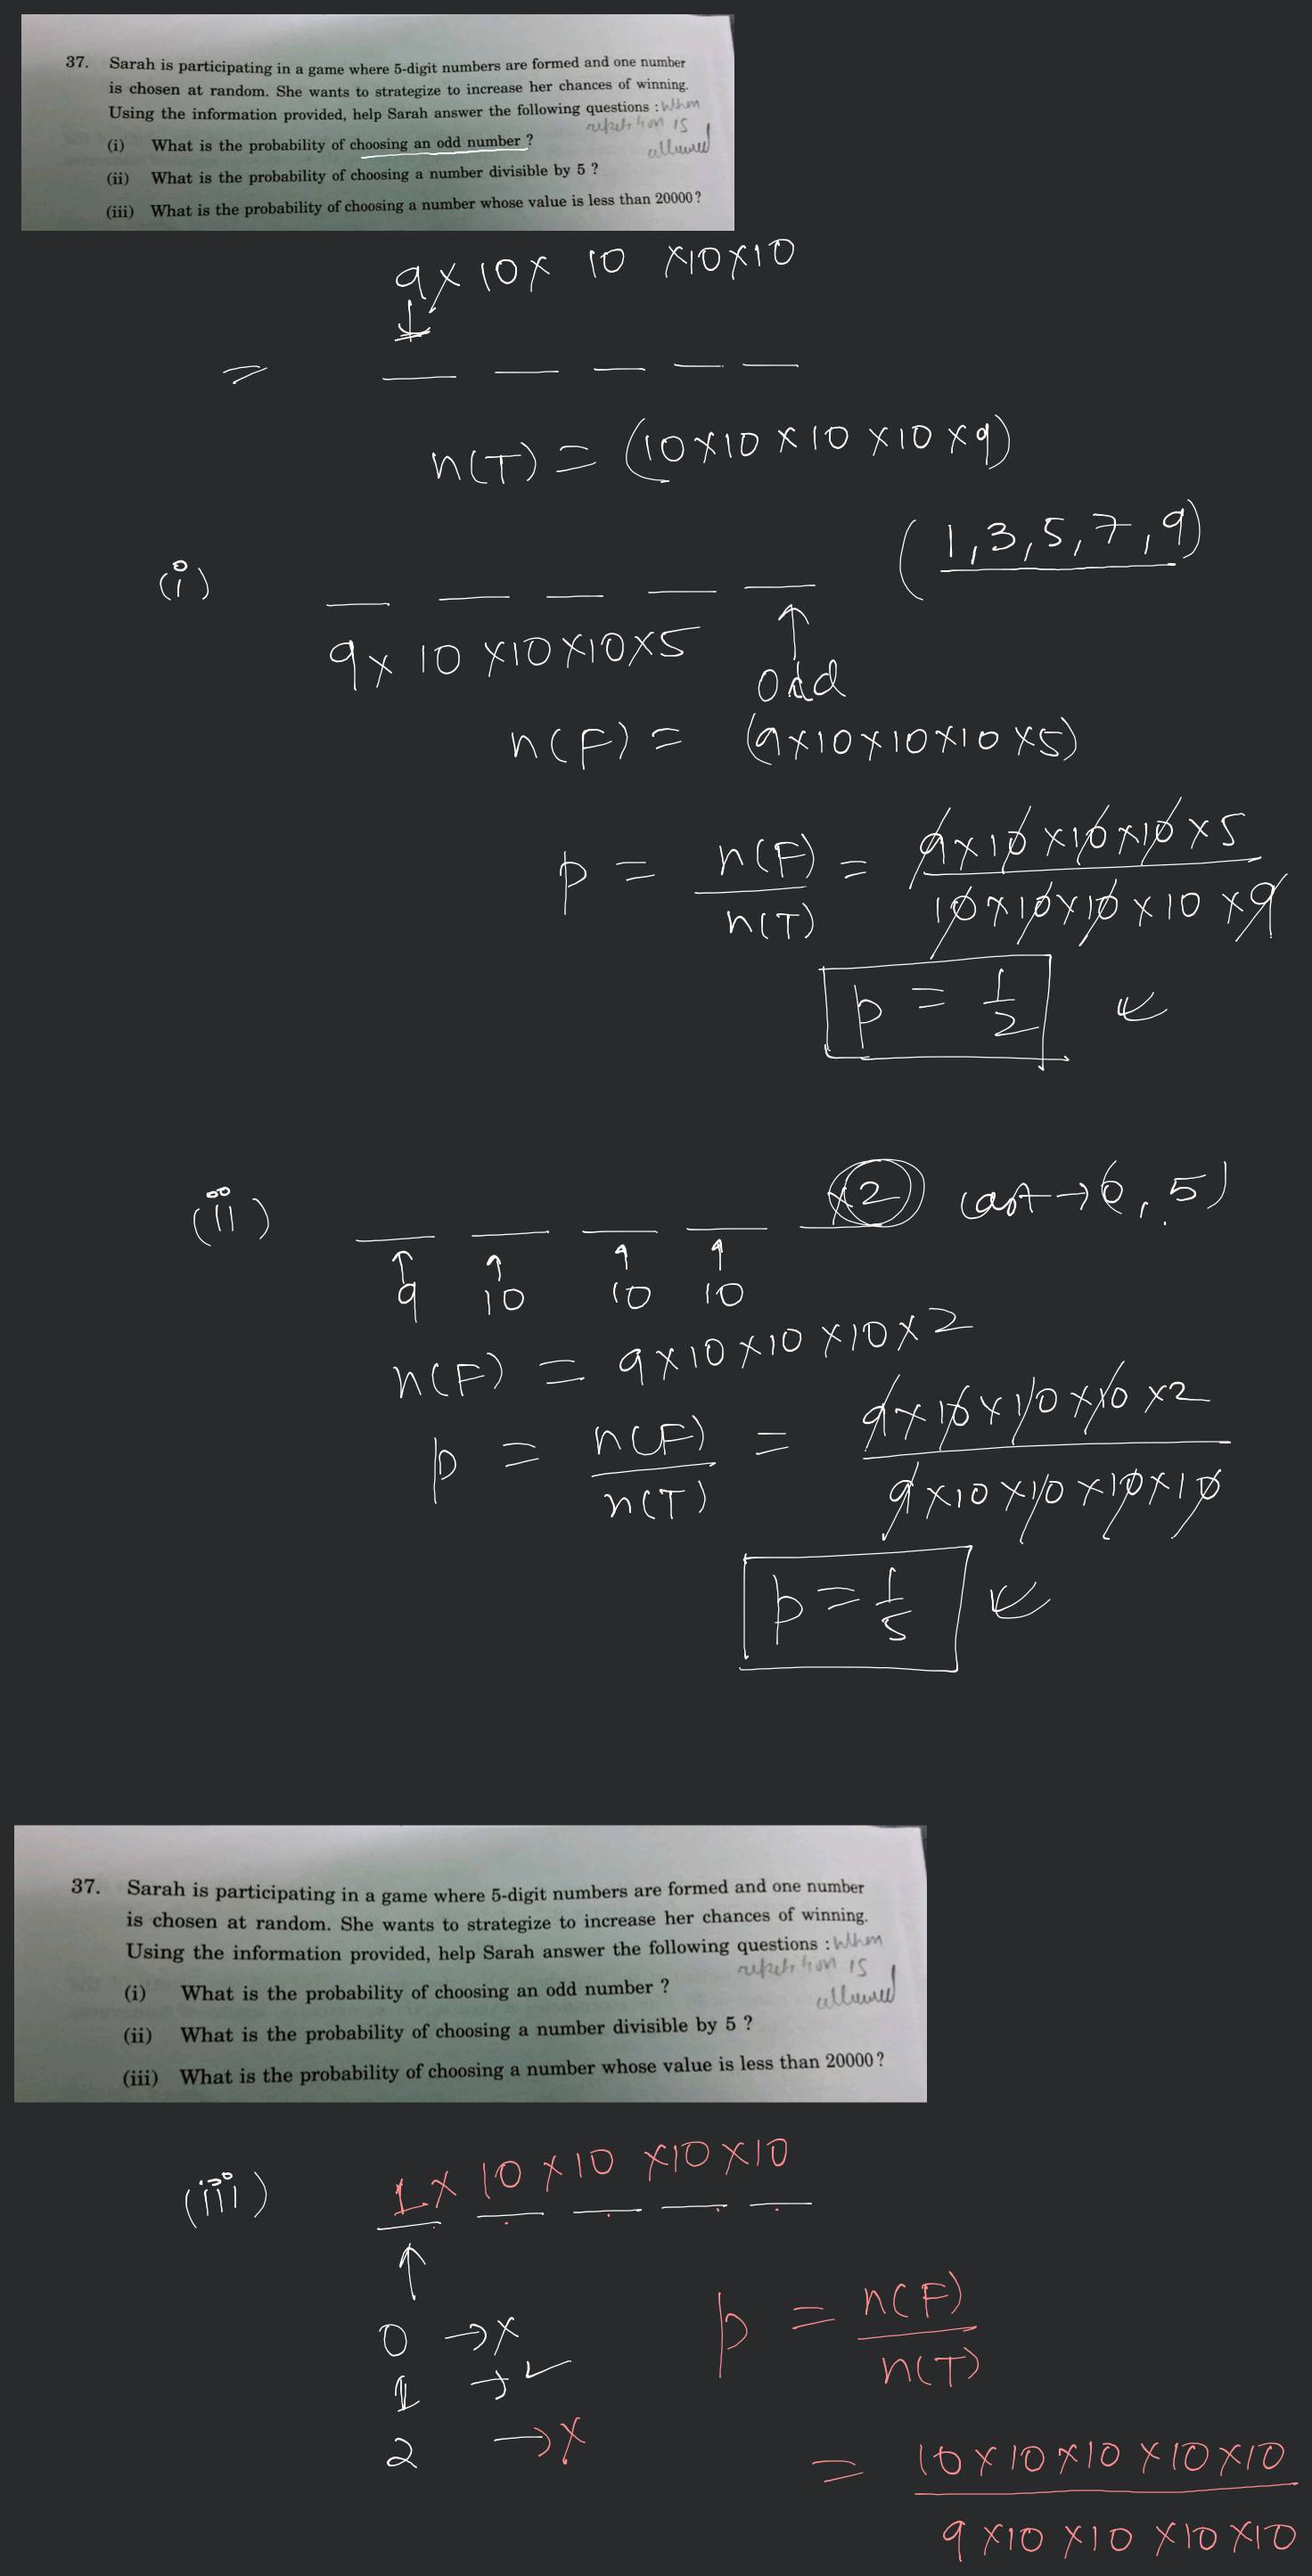 37. Sarah is participating in a game where 5-digit numbers are formed and one number
is chosen at random. She wants to strategize to increase her chances of winning.
Using the information provided, help Sarah answer the following questions : When
repetition is
allowed
(i) What is the probability of choosing an odd number ?
(ii) What is the probability of choosing a number divisible by 5 ?
(iii) What is the probability of choosing a number whose value is less than 20000?
9 × 10 × 10 × 10 × 10
=
n(T) = (10 × 10 × 10 × 10 × 9)
(1, 3, 5, 7, 9)
(i)
9 × 10 × 10 × 10 × 5
odd
n(F) = (9 × 10 × 10 × 10 × 5)
p = n(F)/n(T) = 9 × 10 × 10 × 10 × 5 / 10 × 10 × 10 × 10 × 9
p = 1/2
(ii) × 2 (last → 0, 5)
9 10 10 10
n(F) = 9 × 10 × 10 × 10 × 2
p = n(F)/n(T) = 9 × 10 × 10 × 10 × 2 / 9 × 10 × 10 × 10 × 10
p = 1/5
37. Sarah is participating in a game where 5-digit numbers are formed and one number
is chosen at random. She wants to strategize to increase her chances of winning.
Using the information provided, help Sarah answer the following questions : When
repetition is
allowed
(i) What is the probability of choosing an odd number ?
(ii) What is the probability of choosing a number divisible by 5 ?
(iii) What is the probability of choosing a number whose value is less than 20000?
(iii) 1 × 10 × 10 × 10 × 10
0 → ×
1 → ✓
2 → ×
p = n(F)/n(T)
= 10 × 10 × 10 × 10 × 10 / 9 × 10 × 10 × 10 × 10